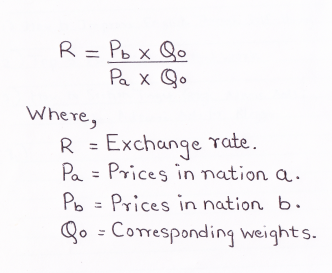 R = Pb x Qo
Pa x Qo
Where,
R = Exchange rate.
Pa = Prices in nation a.
Pb = Prices in nation b.
Qo = Corresponding weights.